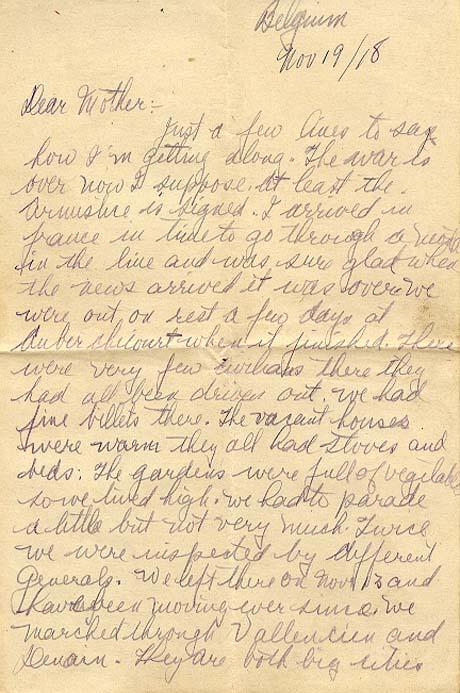 Belgium
Nov 19/18
Dear Mother:-
Just a few lines to say
how I'm getting along. The war is
over now I suppose. at least the
Armistice is signed. I arrived in
france in time to go through a month
in the line and was sure glad when
the news arrived it was over. we
were out on rest a few days at
Auberchicourt when it finished. There
were very few civilians there they
had all been driven out. we had
fine billets there. The vacant houses
were warm they all had stoves and
beds. The gardens were full of vegetables
so we lived high. we had to parade
a little but not very much. Twice
we were inspected by different
Generals. We left there on Nov 13 and
have been moving ever since. We
marched through Vallencien and
Denain. They are both big cities